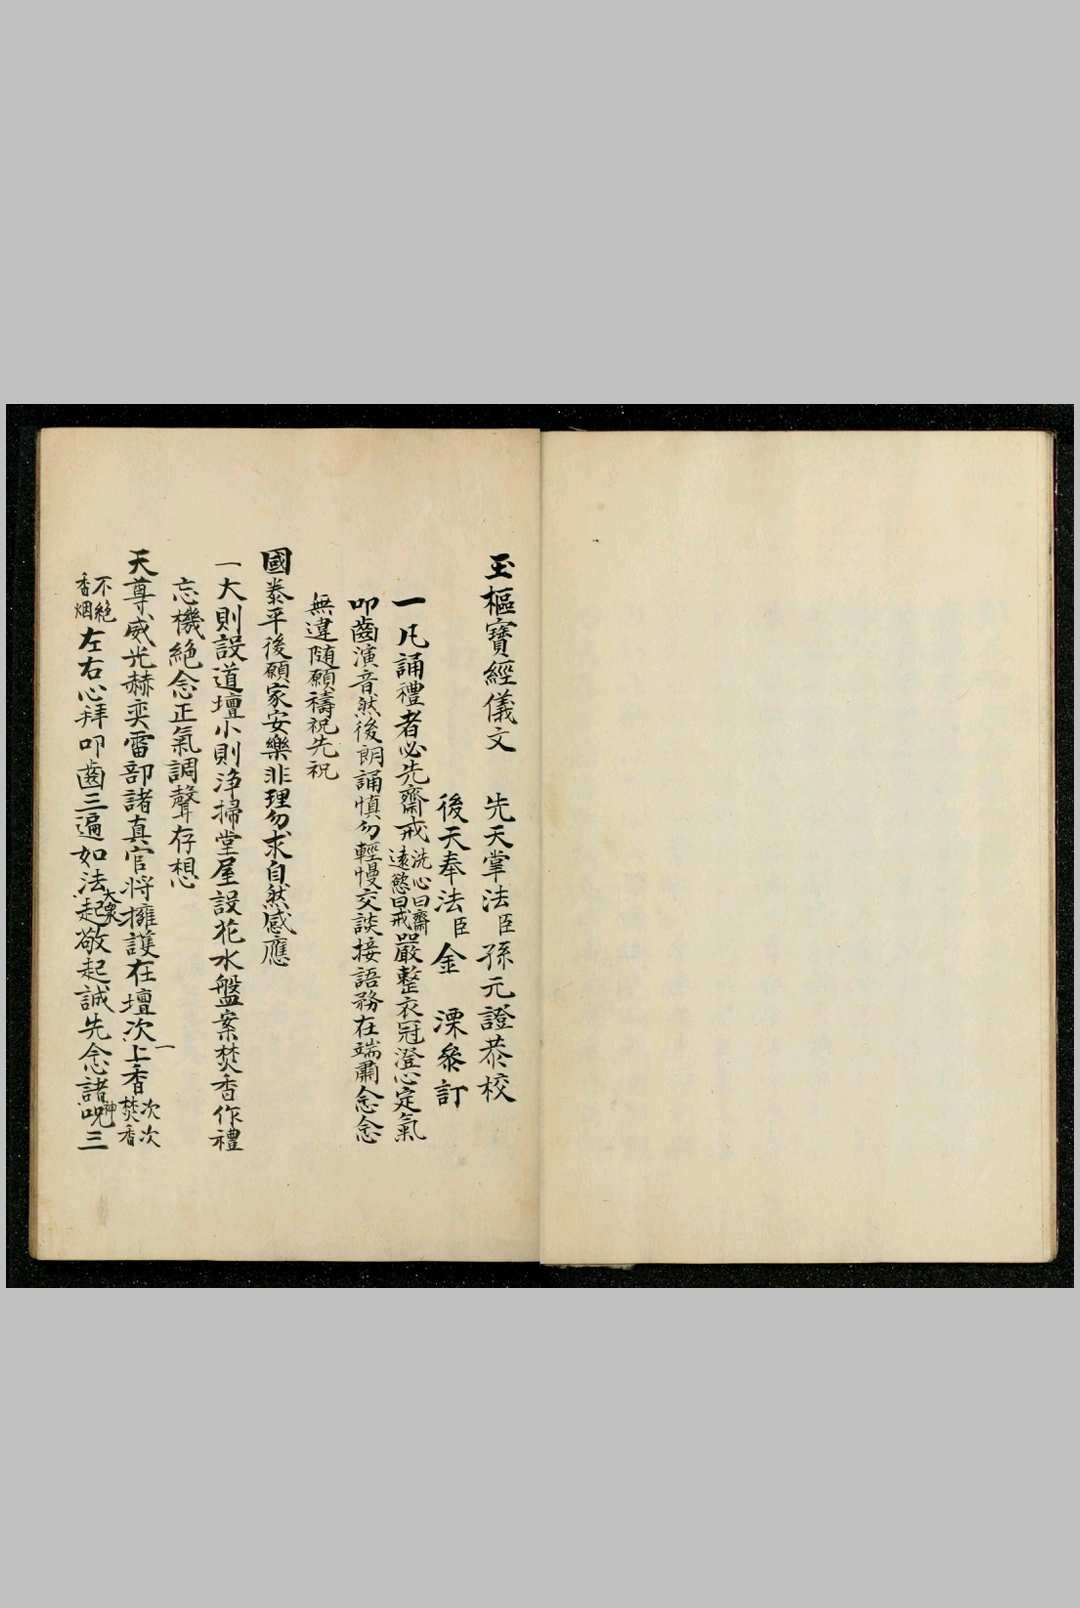 玉樞寶經儀文　先天掌法臣孫元證恭校
後天奉法臣金　溧叅訂
一凡誦禮者必先齋戒洗心曰齋遠慾曰戒嚴整衣冠澄心定氣
叩齒演音然後朗誦慎勿輕慢交談接語務在端肅念念
無違随願禱祝先祝
國泰平後願家安樂非理勿求自然感應
一大則設道壇小則淨掃堂屋設花水盤案焚香作禮
忘機絶念正氣調聲存想
天尊威光赫奕雷部諸真官将擁護在壇次上香一次次焚香
不絶香烟左右心拜叩齒三遍如法起大衆敬起誠先念諸神呪三